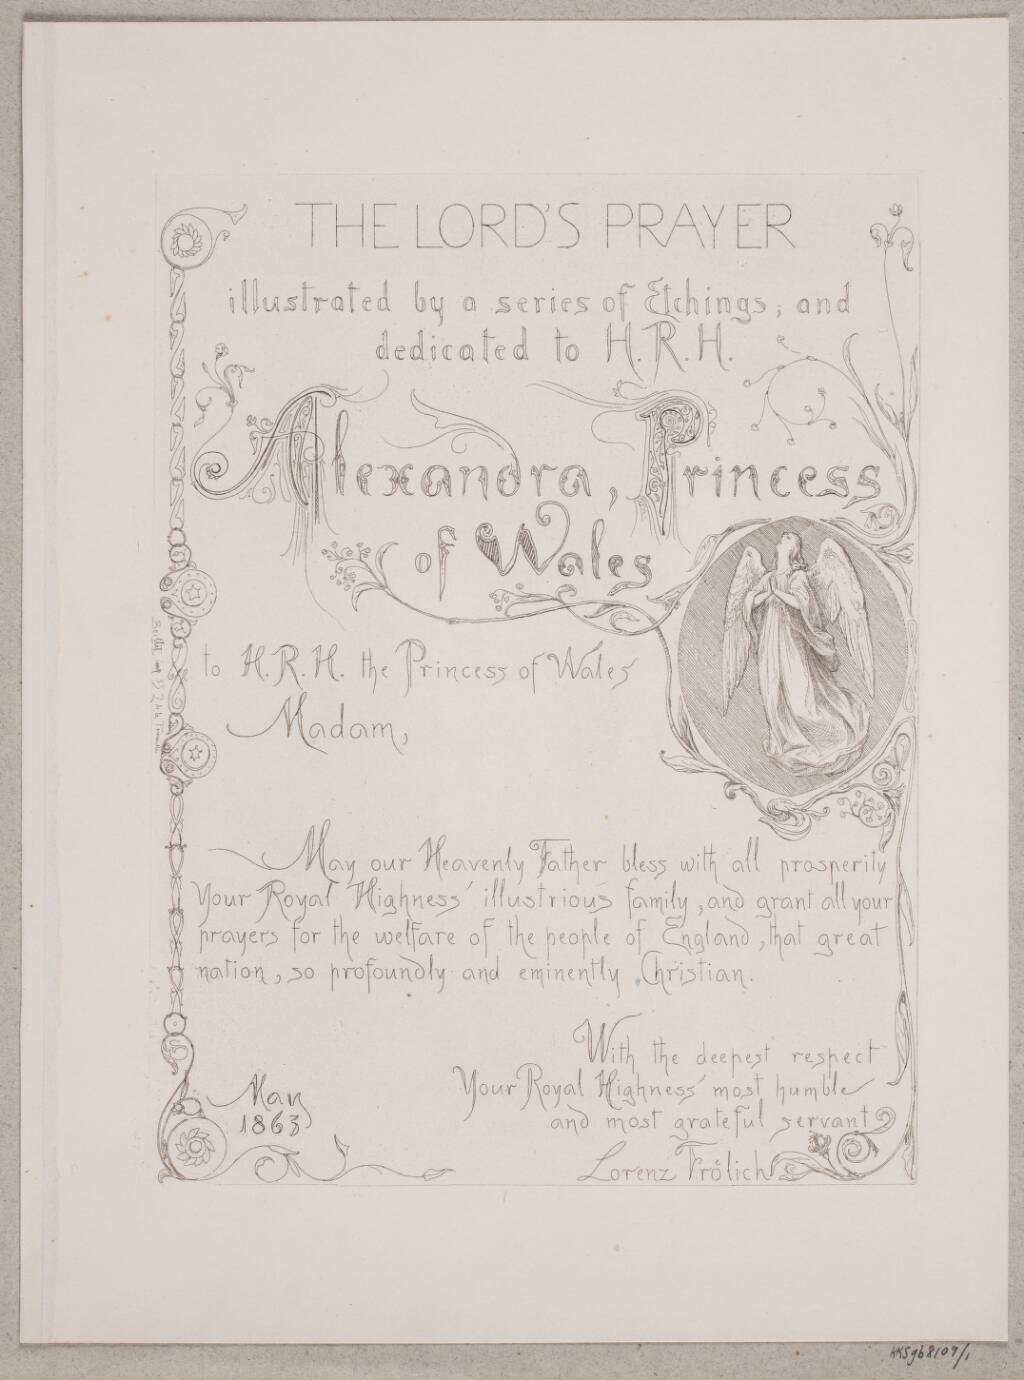 THE LORD'S PRAYER
illustrated by a series of Etchings; and
dedicated to H.R.H.
Alexandra, Princess
of Wales
to H.R.H. the Princess of Wales
Madam,
May our Heavenly Father bless with all prosperity
Your Royal Highness' illustrious family, and grant all your
prayers for the welfare of the people of England, that great
nation, so profoundly and eminently Christian.
With the deepest respect
Your Royal Highness' most humble
and most grateful servant
Lorenz Frölich
May
1863
KKSgb8109/1